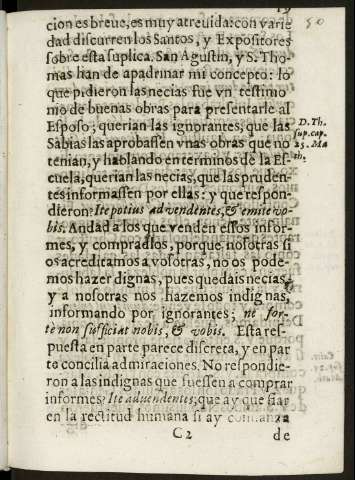 19
50
cion es breue, es muy atreuida: con varie
dad discurren los Santos, y Expositores
sobre esta suplica. San Agustin, y S. Tho-
mas han de apadrinar mi concepto: lo
que pidieron las necias fue vn testimo
nio de buenas obras para presentarle al
Esposo; querian las ignorantes, que las
D. Th.
sup. cap.
25. Ma
th.
Sabias las aprobassen vnas obras que no
tenian, y hablando en terminos de la Es-
cuela, querian las necias, que las pruden-
tes informassen por ellas: y que respon-
dieron? Ite potius ad vendentes, & emite vo-
bis. Andad a los que venden essos infor-
mes, y compradlos, porque nosotras si
os acreditamos a vosotras, no os pode-
mos hazer dignas, pues quedais necias,
y a nosotras nos hazemos indignas,
informando por ignorantes; ne for-
te non sufficiat nobis, & vobis. Esta res-
puesta en parte parece discreta, y en par
te concilia admiraciones. No respondie-
ron a las indignas que fuessen a comprar
informes? Ite ad vendentes; que ay que fiar
en la rectitud humana si ay confianza
C2
de